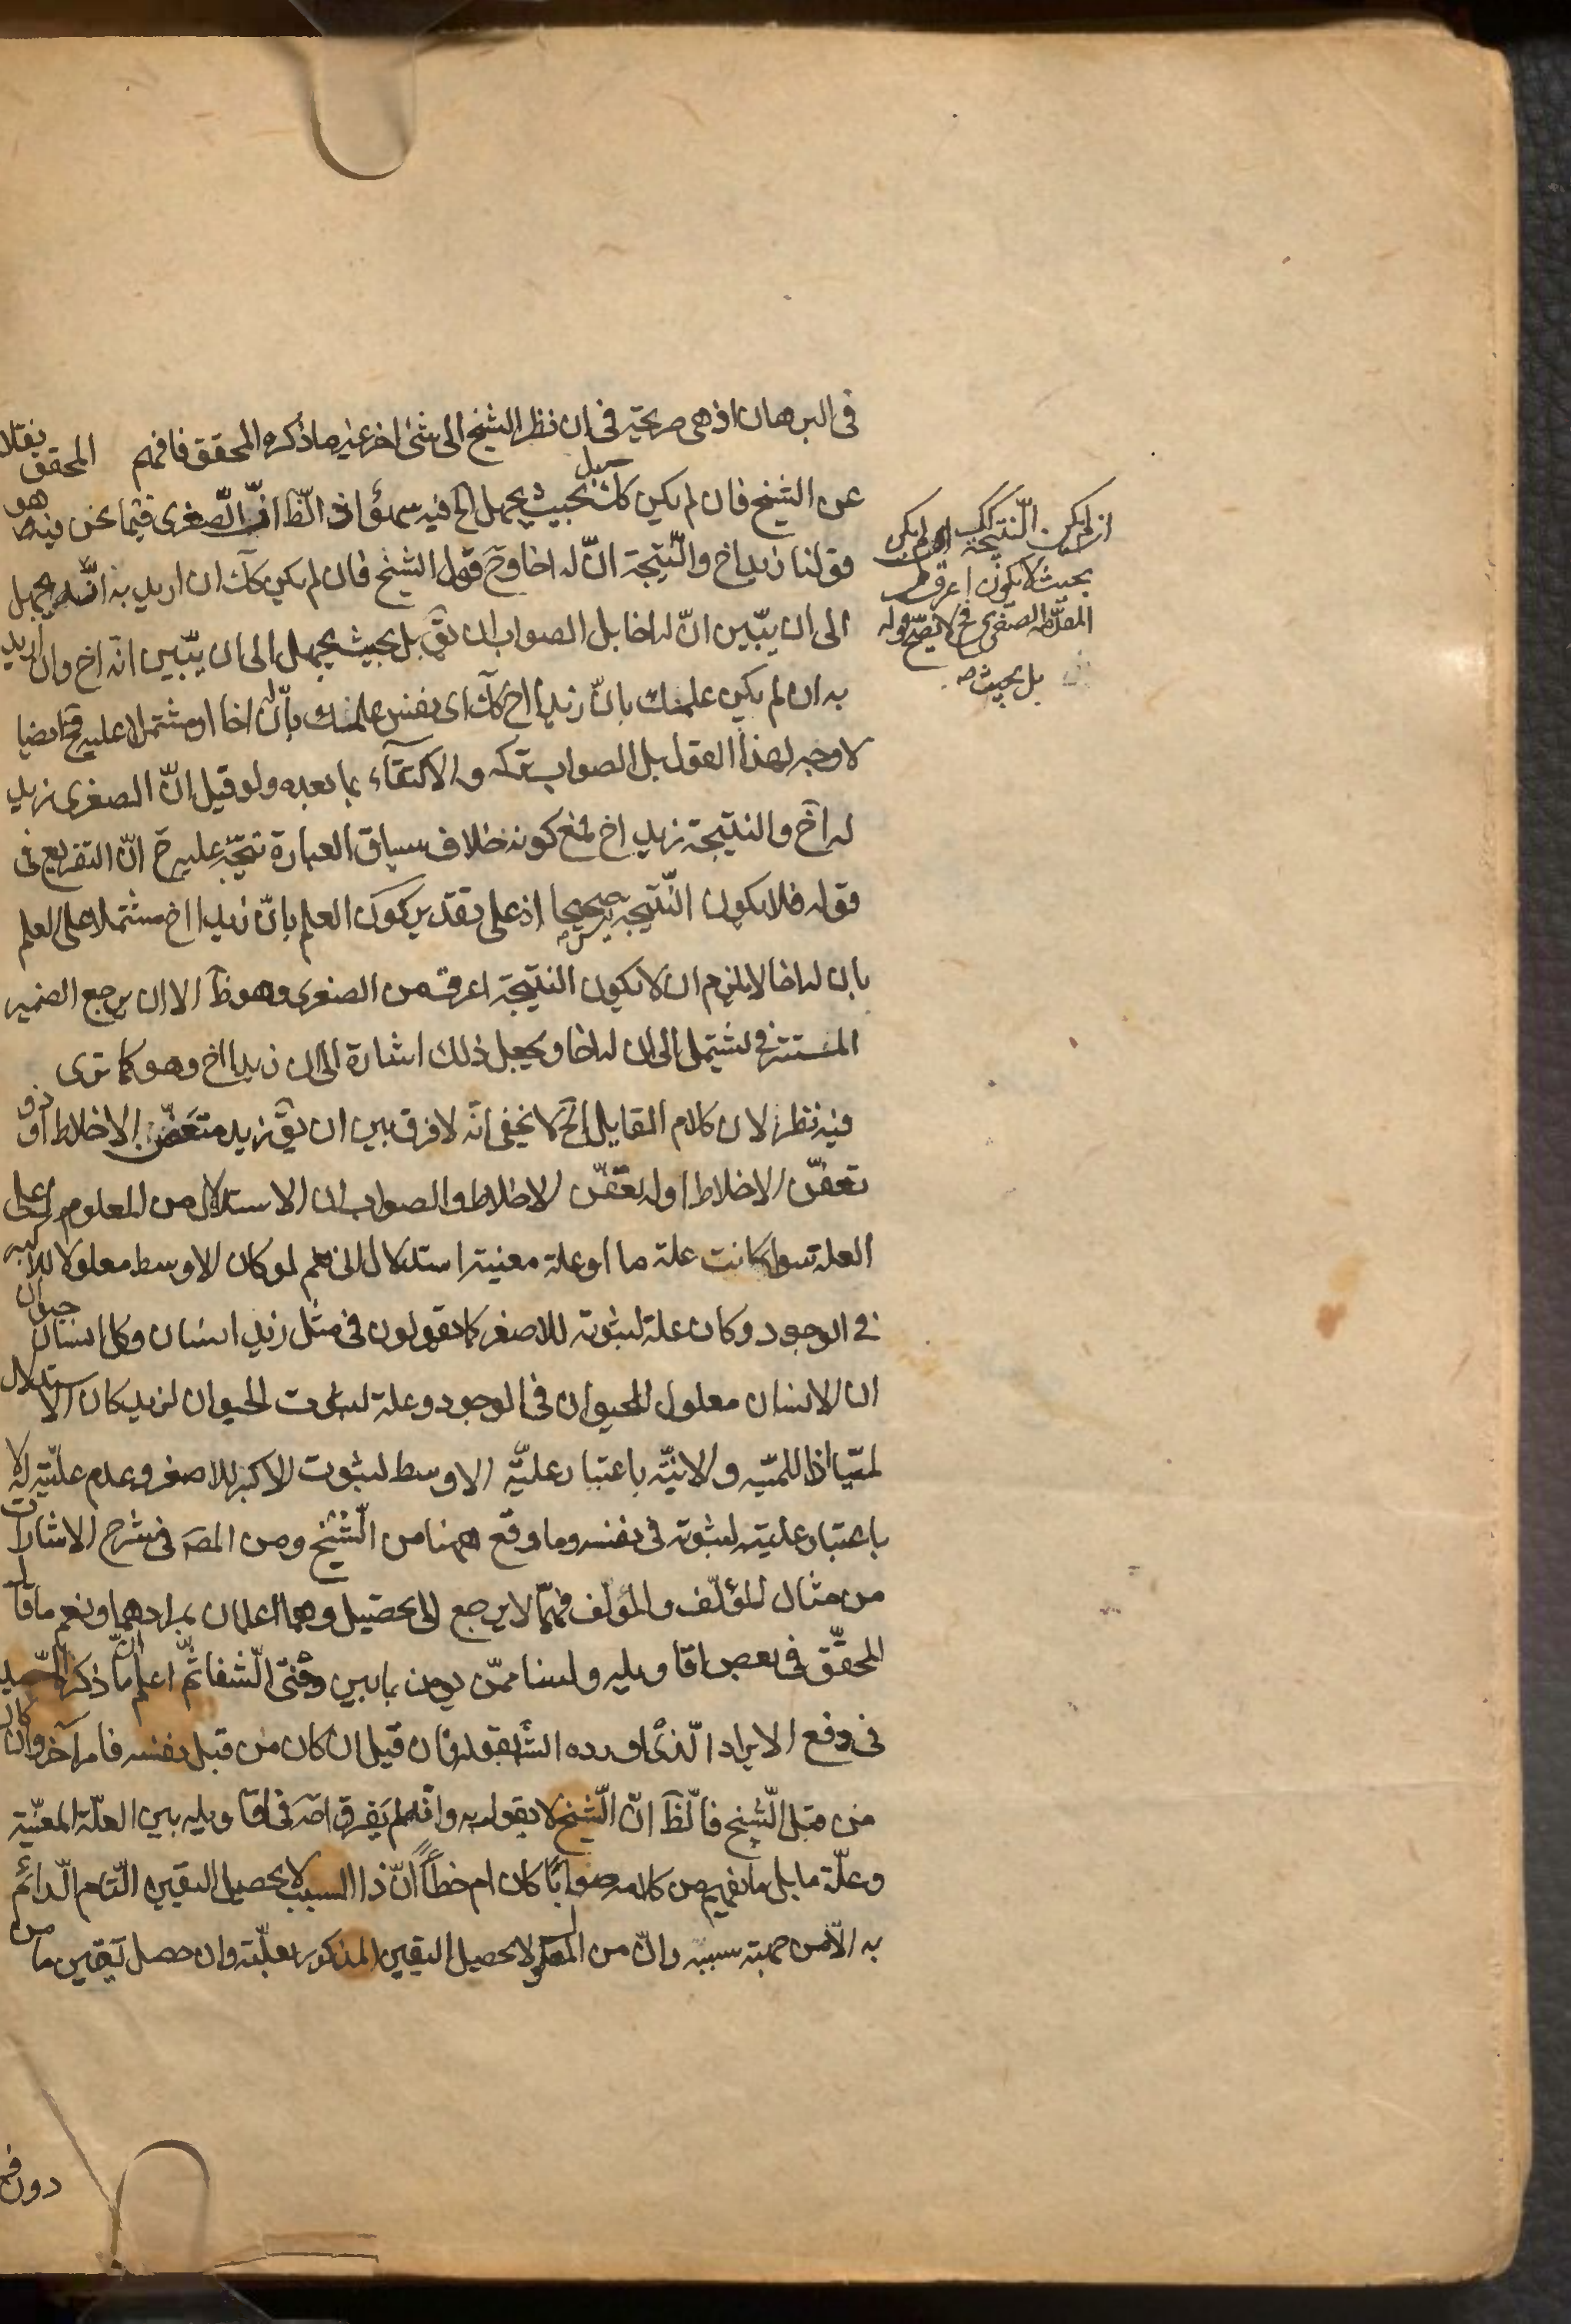 فى البرهان اذ هى صريحة فى ان نظر الشيخ الى شئ اخر غير ما ذكره المحقق فافهم المحقق نقلا
عن الشيخ فان لم يكن كك بل بحيث يجهل الخ فيه سهو اذ الظ ان الصغرى فيما نحن فيه هو
قولنا زيد اخ والنتيجة ان له اخا وح قول الشيخ فان لم يكن كك ان اريد به انه يجهل
الى ان يتبين ان له اخا بل الصواب ان يق بل بحيث يجهل الى ان يتبين انه اخ وان اريد
به ان لم يكن علمك بان زيدا اخ كك اى نفس علمك بان له اخا او مشتملا عليه فح ايضا
لا وجه لهذا القول بل الصواب تركه والاكتفاء بما بعده ولو قيل ان الصغرى زيد
له اخ والنتيجة زيد اخ فمع كونه خلاف سياق العبارة يتجه عليه ح ان التفريع فى
قوله فلا يكون النتيجة ليس صحيحا اذ على تقدير كون العلم بان زيدا اخ مشتملا على العلم
بان له اخا لا يلزم ان لا يكون النتيجة اعرف من الصغرى وهو ظ الا ان يرجع الضمير
المستتر فى يشتمل الى ان له اخا ويجعل ذلك اشارة الى ان زيدا اخ وهو كما ترى
فيه نظر لان كلام القايل الخ لا يخفى انه لا فرق بين ان يق زيد متعفن الاخلاط او ذو
تعفن الاخلاط او له تعفن الاخلاط والصواب ان الاستدلال من المعلول على
العلة سواء كانت علة ما او علة معينة استدلال انى نعم لو كان الاوسط معلولا للاكبر
فى الوجود وكان علة لثبوته للاصغر كما يقولون فى مثل زيد انسان وكل انسان حيوان
ان الانسان معلول للحيوان فى الوجود وعلة لثبوت الحيوان لزيد كان الاستدلال
لميا اذ اللمية والانية باعتبار علية الاوسط لثبوت الاكبر للاصغر وعدم عليته له لا
باعتبار عليته لثبوته فى نفسه وما وقع ههنا من الشيخ ومن المصه فى شرح الاشارات
من مثال المؤلف والمؤلف فمما لا يرجع الى تحصيل وهما اعلمان بمرادهما ونعم ما قال
المحقق فى بعض اقاويله ولسنا ممن يومن بما بين دفتى الشفا ثم اعلم ان ما ذكره السيد
فى دفع الايراد الذى اورده الش بقوله فان قيل ان كان من قبل نفسه فامر آخر وان كان
من قبل الشيخ فالظ ان الشيخ لا يقول به وانه لم يفرق اصه فى اقاويله بين العلة المعينة
وعلة ما بل ما يفهم من كلامه صوابا كان ام خطأ ان ذا السبب لا يحصل اليقين التام الدائم
به الا من جهة سببه وان من المعلول لا يحصل اليقين المذكور بعلته وان حصل يقين ما من
دون
بحيث لا يكون اعرف من
الصغرى فح لا يصح قوله
بل بحيث صه